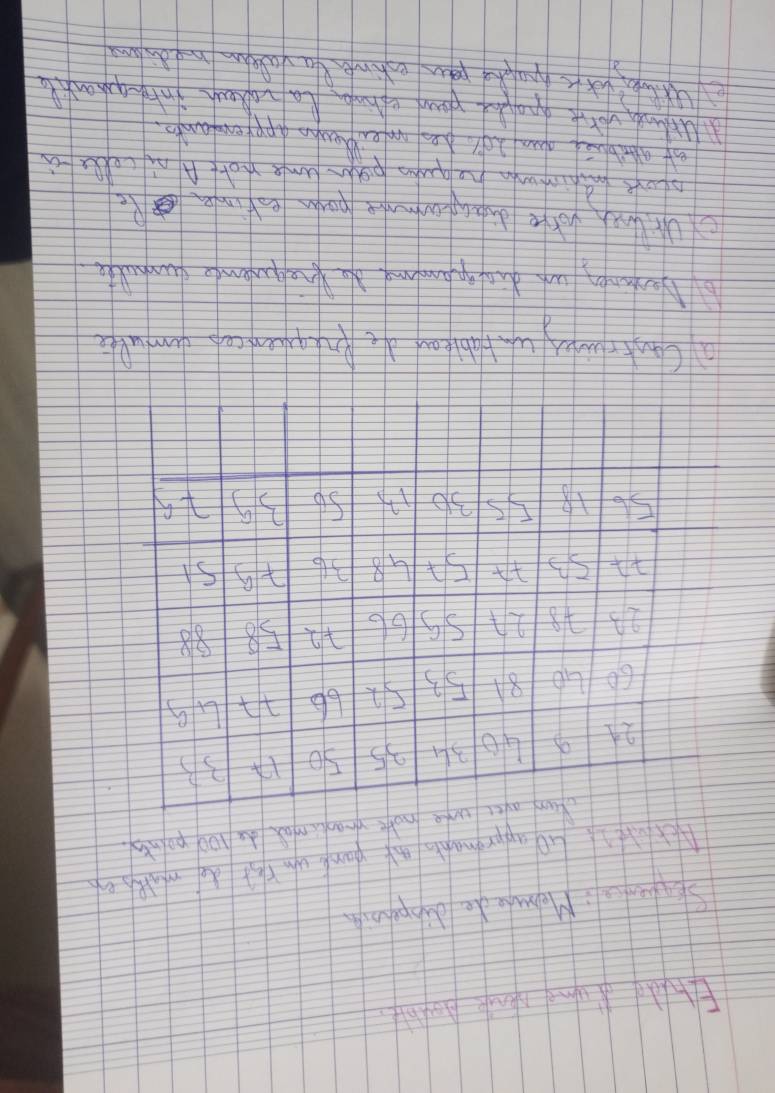 Etude d'une série double.
Séquence : Mesure de dispersion
Activité 1: 40 apprenants ont passé un test de maths en
avec une note maximal de 100 points.
21 9 40 34 35 50 17 33
60 40 81 53 52 66 77 49
23 78 27 59 66 72 58 88
77 53 77 57 48 36 79 51
56 18 55 30 17 50 39 79
a) Construisez un tableau de frequences cumulée
b) Dessinez un diagramme de fréquence cumulée.
c) Utilisez votre diagramme pour estimer le
score minimum requis pour une note A si celle-ci
est attribuée aux 20% des meilleurs apprenants.
d) Utilisez votre graphe pour estimer la valeur interquartile
e) Utilisez votre graphe pour estimé la valeur mediane